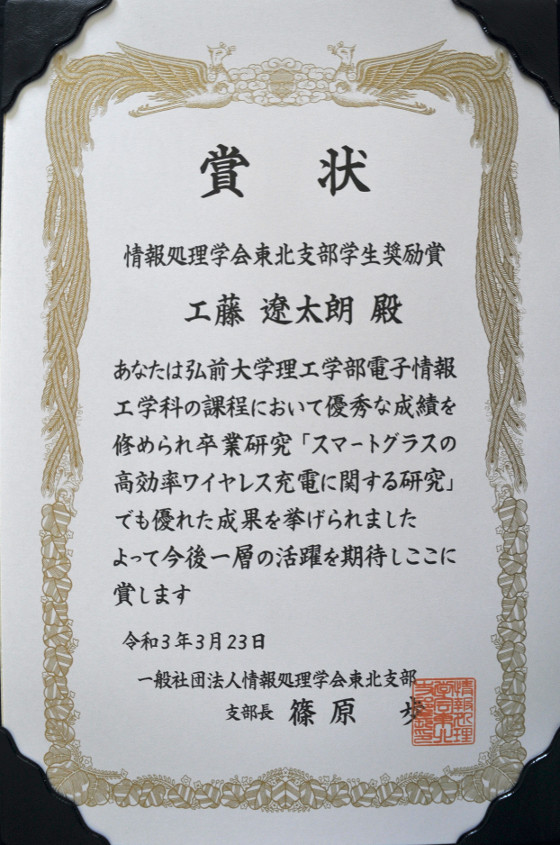 賞 状
情報処理学会東北支部学生奨励賞
工藤 遼太朗 殿
あなたは弘前大学理工学部電子情報
工学科の課程において優秀な成績を
修められ卒業研究「スマートグラスの
高効率ワイヤレス充電に関する研究」
でも優れた成果を挙げられました
よって今後一層の活躍を期待しここに
賞します
令和3年3月23日
一般社団法人情報処理学会東北支部
支部長 篠原 歩